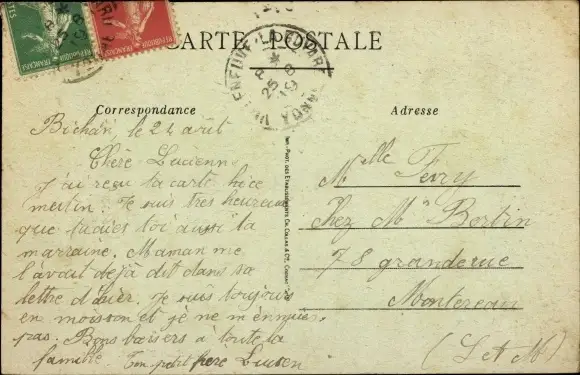 CARTE POSTALE
RÉPUBLIQUE FRANÇAISE
RÉPUBLIQUE FRANÇAISE
25 - 8
Correspondance
Adresse
le 24 août
Chère Lucienne
J'ai reçu ta carte ce
matin. Je suis très heureuse
que tu aies toi aussi ta
marraine. Maman me
l'avait déjà dit dans sa
lettre d'hier. Je suis toujours
en moisson et je ne m'ennuie
pas. Bons baisers à toute la
famille. Ton petit frère Lucien
Melle Ferry
Chez Mme Bertin
78 grande rue
Montereau
(S et M)